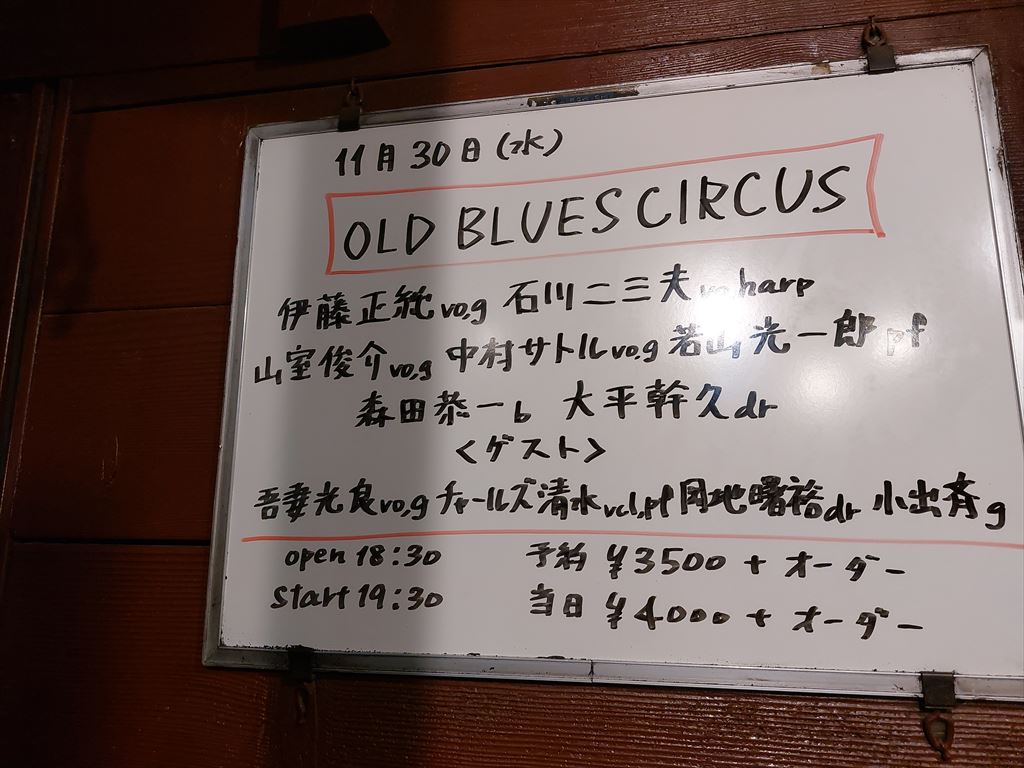 11月30日(水)
OLD BLUES CIRCUS
伊藤正純vo,g 石川二三夫 harp
山室俊介vo,g 中村サトルvo,g 若山光一郎pf
森田恭一b 大平幹久dr
<ゲスト>
吾妻光良vo,g チャールズ清水vcl,pf 岡地曙裕dr 小出斉g
open 18:30 予約 ¥3500 + オーダー
start 19:30 当日 ¥4000 + オーダー